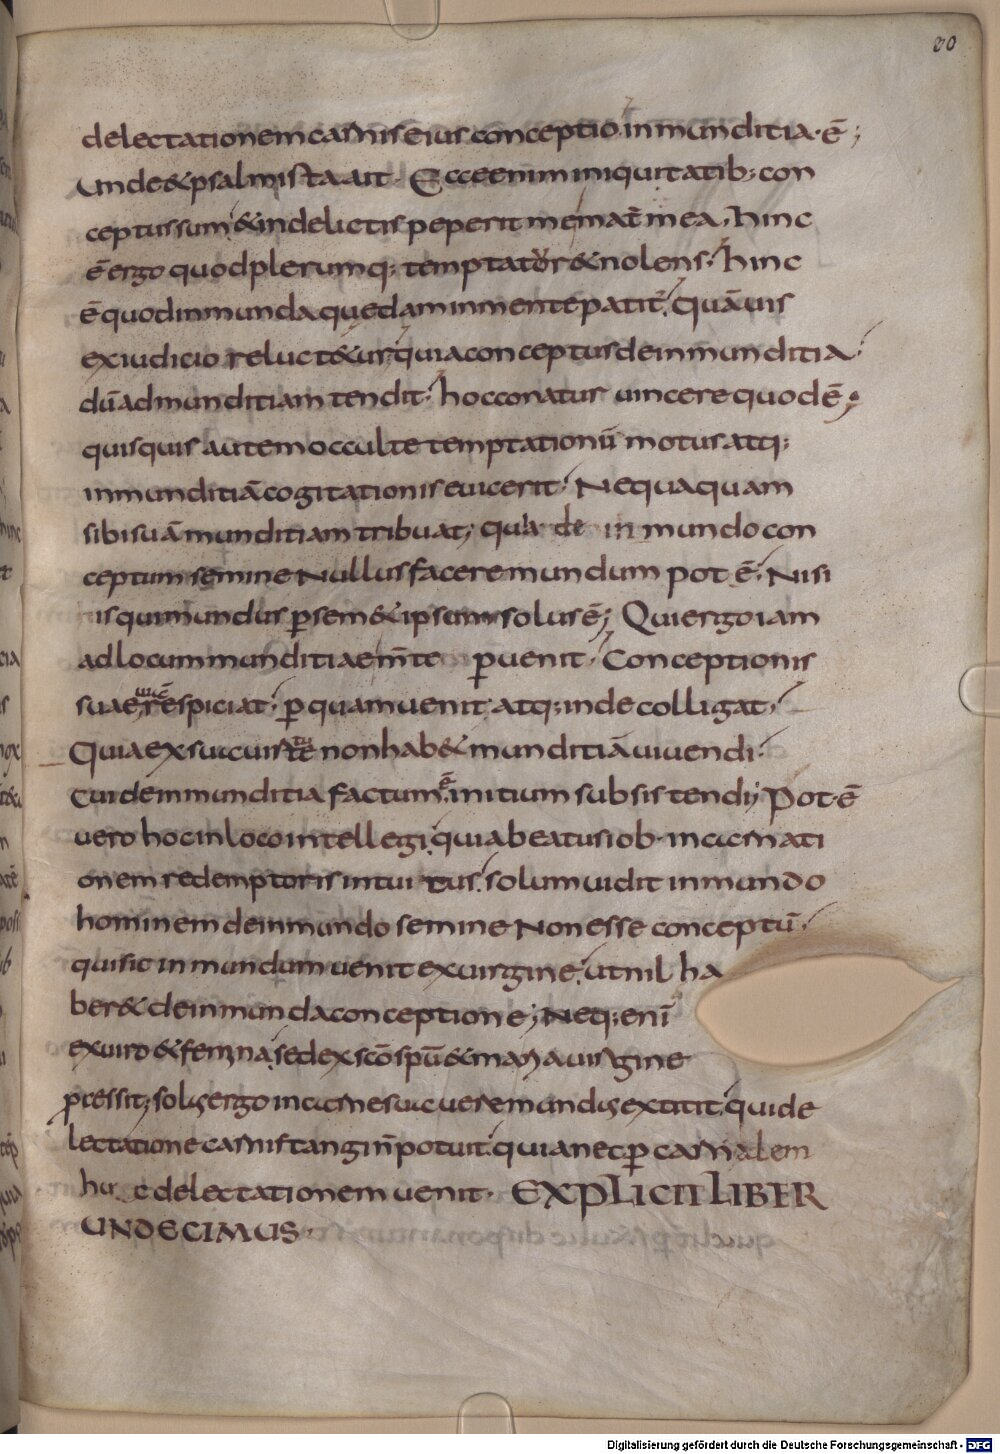 80
delectationem carnis eius conceptio inmunditia ē;
Unde & psalmista ait. Ecce enim iniquitatib; con
ceptus sum & in delictis peperit me mat̄ mea. hinc
ē ergo quod plerumq; temptat̄ur & nolens. hinc
ē quod inmunda quędam in mente patit̄. Quāuis
ex iudicio reluct&ur quia conceptus de inmunditia
dū ad munditiam tendit. hoc conatur uincere quod ē;
quisquis autem occulte temptationū motus atq;
inmunditiā cogitationis euicerit. Nequaquam
sibi suā munditiam tribuat; quia de inmundo con
ceptum semine Nullus facere mundum pot ē. Nisi
is qui mundus p sem & ipsum solus ē; Qui ergo iam
ad locum munditiae m̄te puenit. Conceptionis
suae uiā respiciat. p quam uenit atq; inde colligat.
Quia ex sua uirtute non hab& munditiā uiuendi.
Cui de inmunditia factum ē initium subsistendi; Pot ē
uero hoc in loco intellegi quia beatus iob. incarnati
onem redemptoris intuitus. solum uidit in mundo
hominem de inmundo semine Non esse conceptū.
qui sic in mundum uenit ex uirgine. ut nil ha
ber& de inmunda conceptione; Neq; enī
ex uiro & femina. sed ex sc̄o spū & maria uirgine
pcessit; solus ergo in carne sua uere mundus extitit. qui de
lectatione carnis tangi n̄ potuit. quia nec p carnalem
huc delectationem uenit. EXPLICIT LIBER
UNDECIMUS.
Digitalisierung gefördert durch die Deutsche Forschungsgemeinschaft - DFG